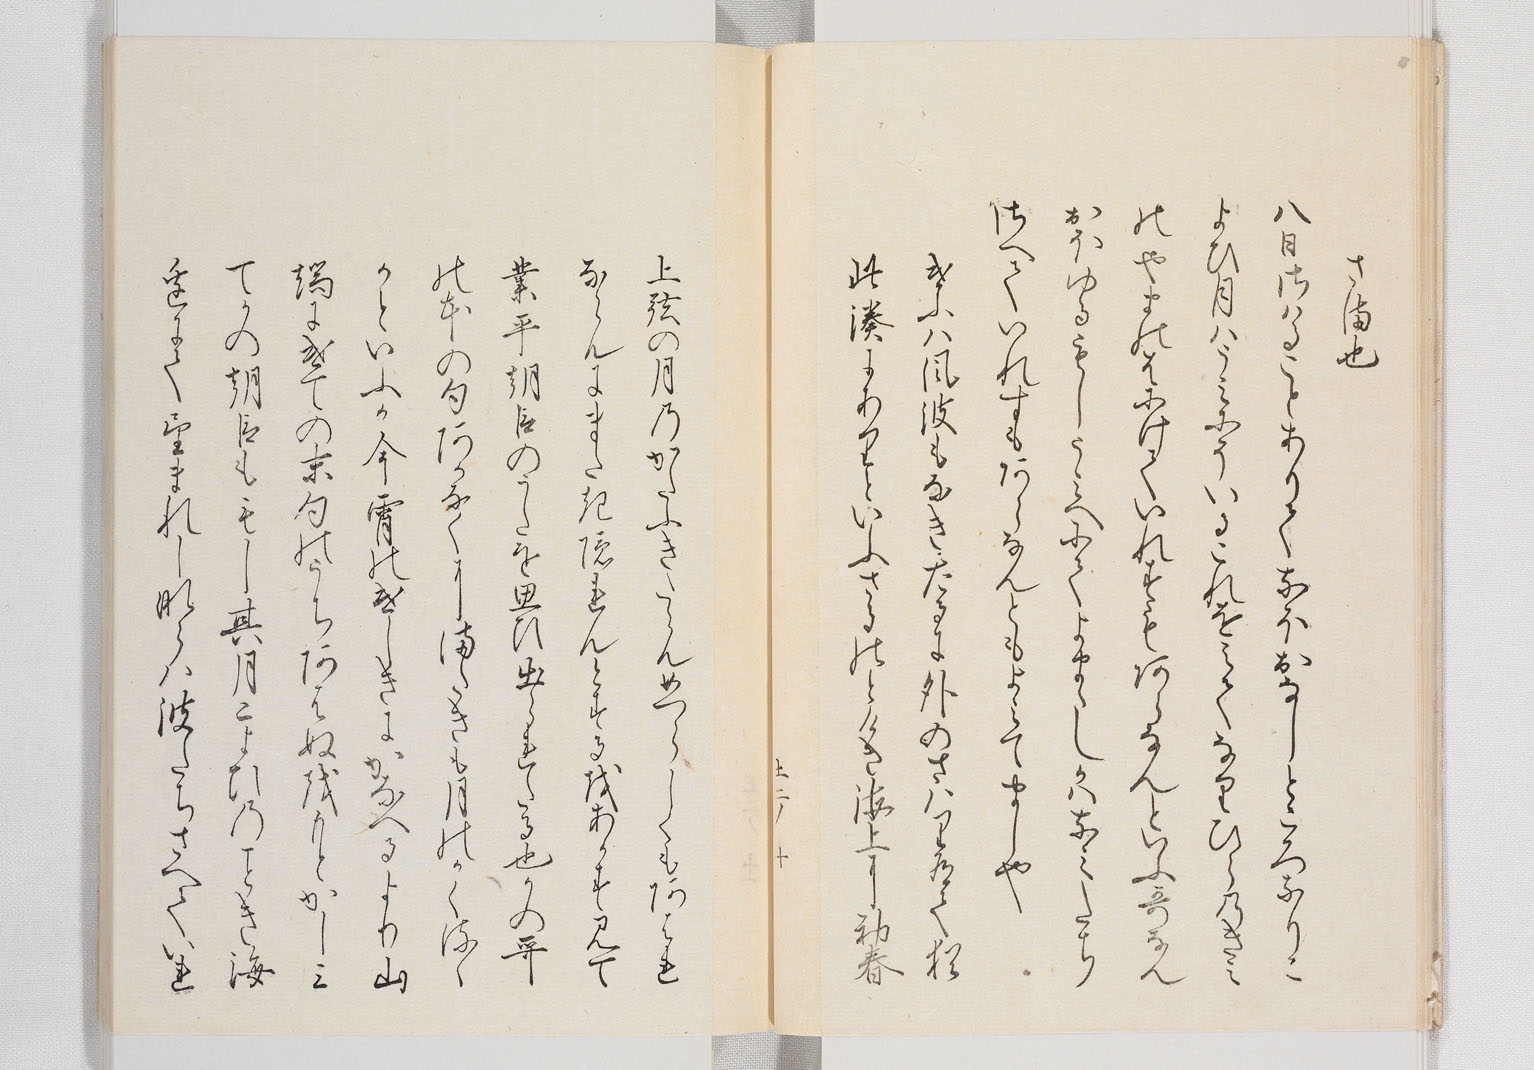 さ満也
八日はることありてなほおなしところなりこ
よひ月はうみにそいるこれをみてなりひらのきみ
のやまのはにけていれすもあらなんといふ哥なん
おほゆるもしうみへにてよまゝしかはなみたち
さへていれすもあらなんともよみてましや
けふハ風波もなきたるに外のさハり有て猶
此湊にありといふさるのとけき海上に初春
上二ノ十
上弦の月のかたふきたらんけしくもあはれ
ならんにまたき隠れんとするをあかす見て
業平朝臣のうたを思ひ出られたる也かの哥
の本の句あかなくにまたきも月のかくるゝ
かといふか今宵のけしきにかなへるより山
端にけての末句のうちあはぬをもとかしミ
てかの朝臣ももし其月こよひのことき海
辺にてよまれしならハ波たちさへていれ